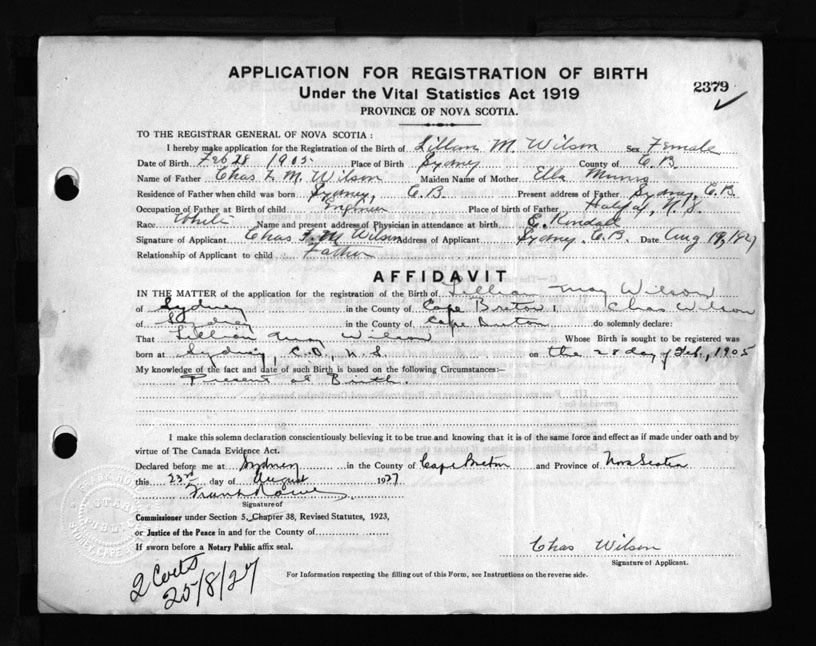 APPLICATION FOR REGISTRATION OF BIRTH
Under the Vital Statistics Act 1919
2379
PROVINCE OF NOVA SCOTIA.
TO THE REGISTRAR GENERAL OF NOVA SCOTIA :
I hereby make application for the Registration of the Birth of Lillian M. Wilson Sex Female
Date of Birth Feb 28 1905 Place of Birth Sydney County of C.B.
Name of Father Chas M. Wilson Maiden Name of Mother Ella Munro
Residence of Father when child was born Sydney, C.B. Present address of Father Sydney, C.B.
Occupation of Father at Birth of child Engineer Place of birth of Father Halifax, N.S.
Race White Name and present address of Physician in attendance at birth E. Kendall
Signature of Applicant Chas M Wilson Address of Applicant Sydney. C.B. Date Aug 1927
Relationship of Applicant to child Father
AFFIDAVIT
IN THE MATTER of the application for the registration of the Birth of Lillian May Wilson
of Sydney in the County of Cape Breton, I Chas Wilson
of Sydney in the County of Cape Breton do solemnly declare:
That Lillian May Wilson Whose Birth is sought to be registered was
born at Sydney, C.B., N.S. on the 28 day of Feb., 1905
My knowledge of the fact and date of such Birth is based on the following Circumstances:—
Present at Birth.
I make this solemn declaration conscientiously believing it to be true and knowing that it is of the same force and effect as if made under oath and by
virtue of The Canada Evidence Act.
Declared before me at Sydney in the County of Cape Breton and Province of Nova Scotia
this 23rd day of August 1927
Frank
Signature of
Commissioner under Section 5, Chapter 38, Revised Statutes, 1923,
or Justice of the Peace in and for the County of
If sworn before a Notary Public affix seal.
Chas Wilson
Signature of Applicant.
2 Certs
25/8/27
For Information respecting the filling out of this Form, see Instructions on the reverse side.